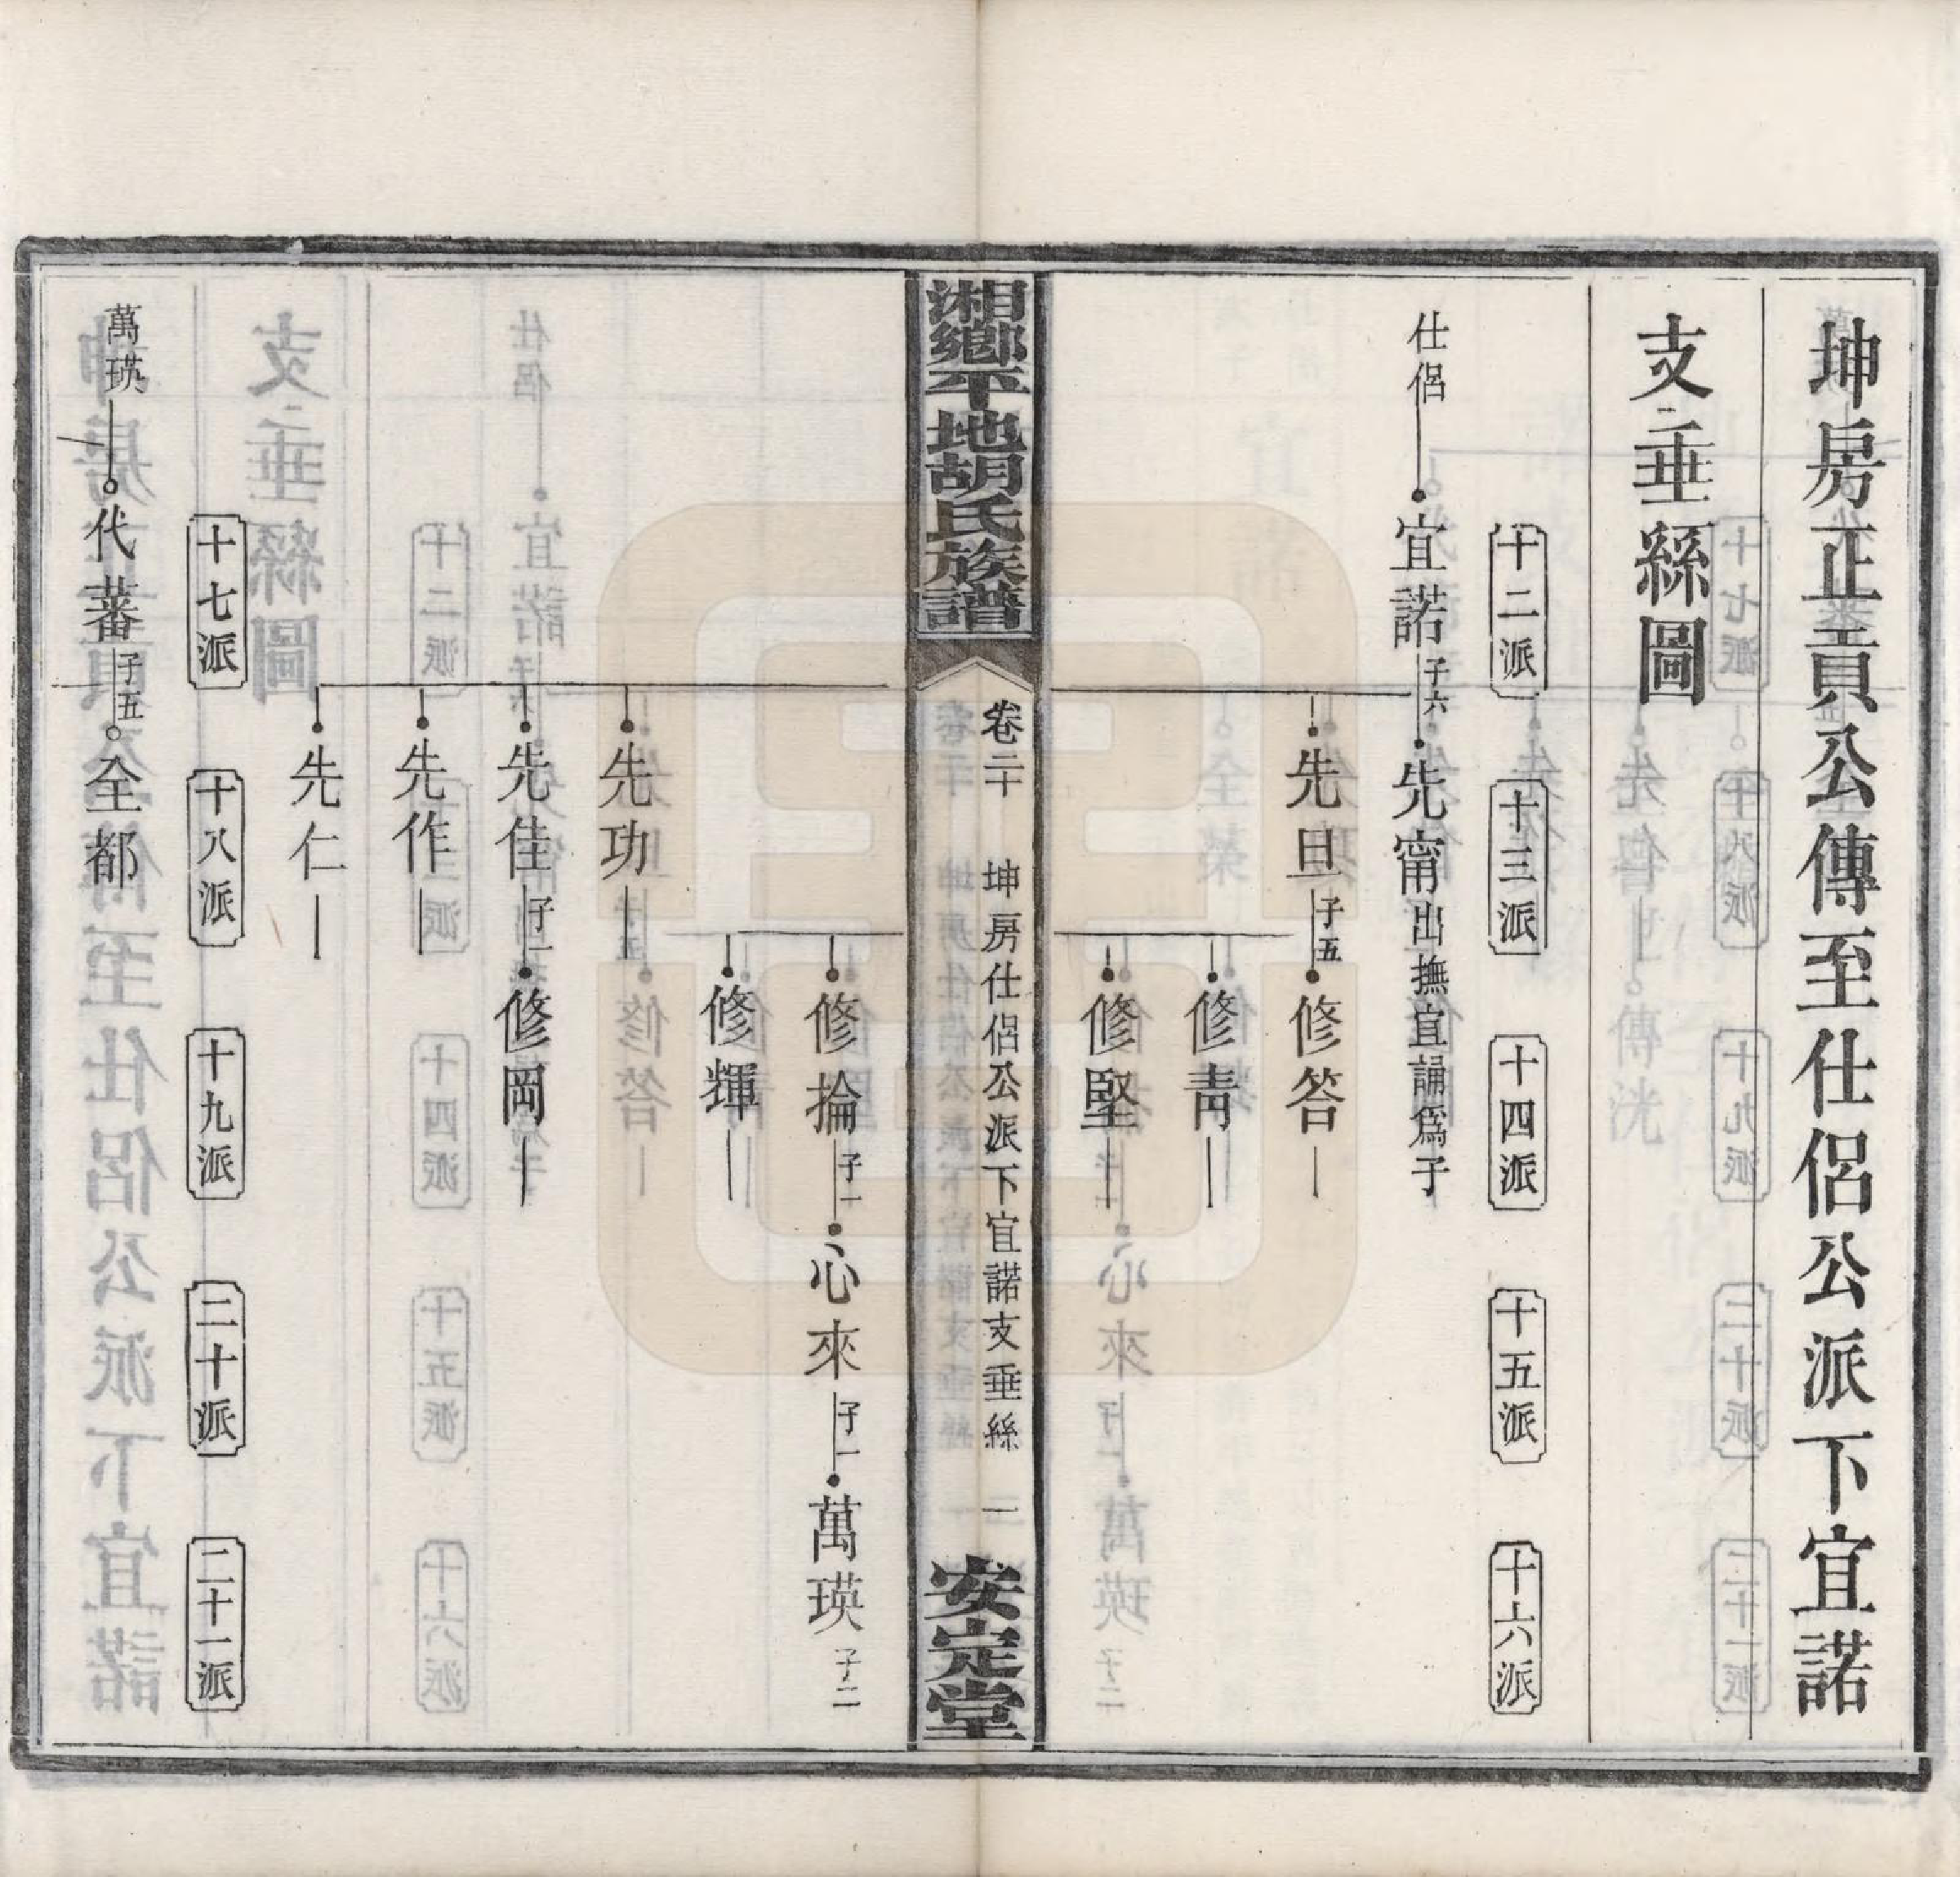 坤房正貢公傳至仕侶公派下宜諾
支垂絲圖
十二派
十三派
十四派
十五派
十六派
仕侶
宜諾 子六
先甯 出撫宜誦爲子
先旦 子五
修答
修靑
修堅
湘鄉平地胡氏族譜
卷二十
坤房仕侶公派下宜諾支垂絲
一
安定堂
修掄 子一
心來 子一
萬瑛 子二
修輝
先功
先佳 子一
修岡
先作
先仁
十七派
十八派
十九派
二十派
二十一派
萬瑛
代蕃 子五
全都